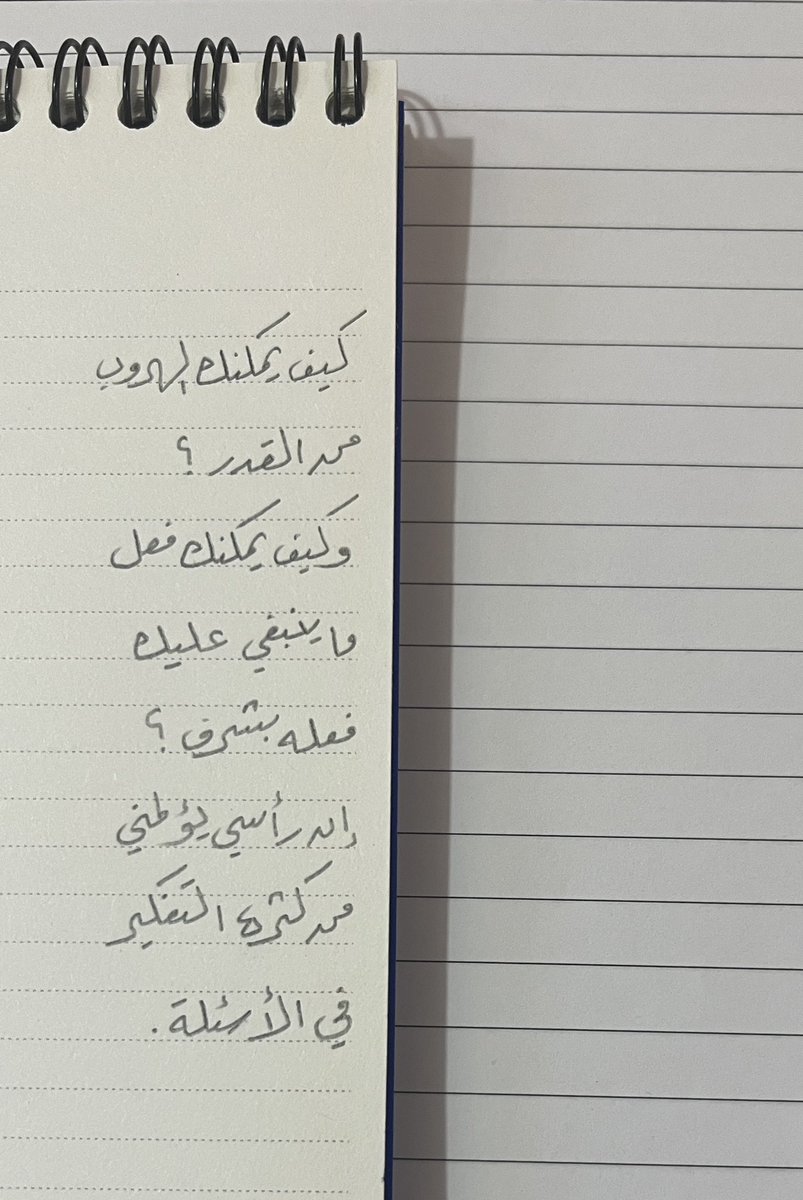 كيف يمكنك الهروب
من القدر ؟
وكيف يمكنك فعل
ما ينبغي عليك
فعله بشرف ؟
إن رأسي يؤلمني
من كثرة التفكير
في الأسئلة .